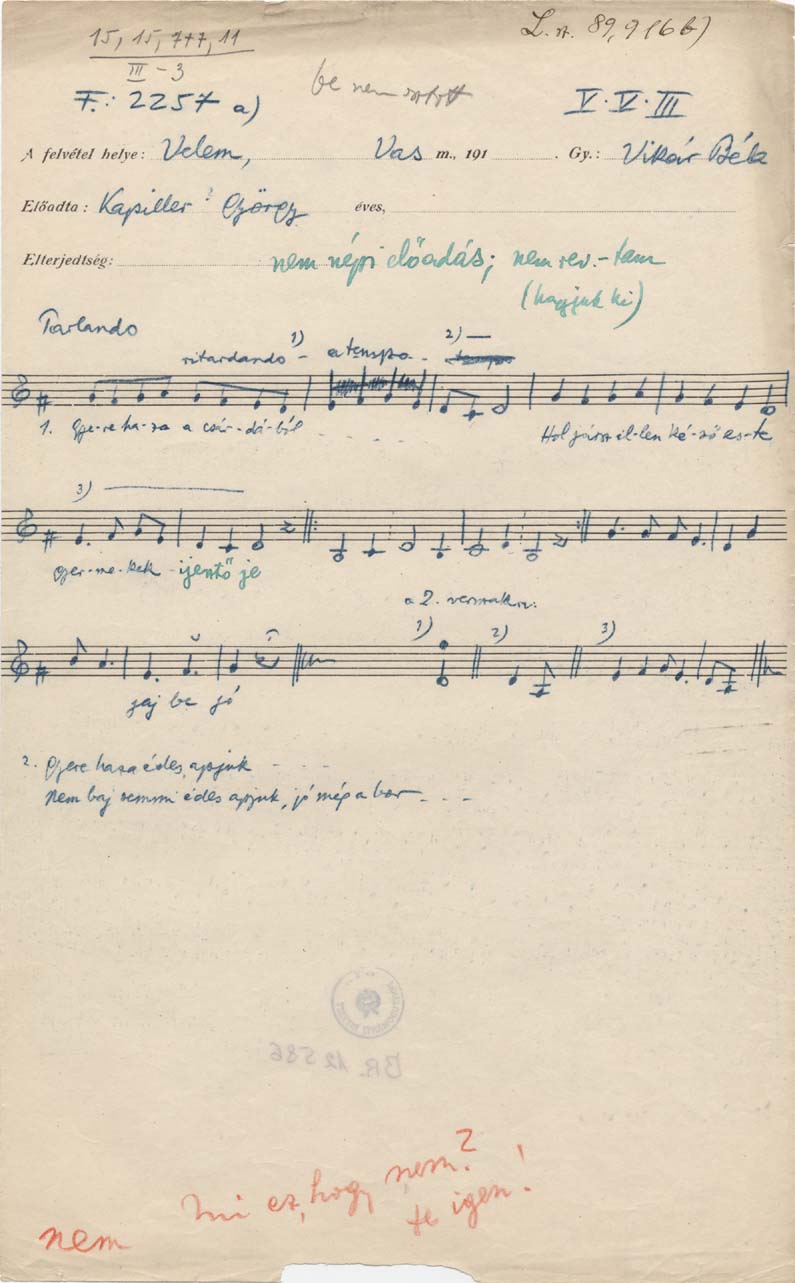 15, 15, 7+7, 11
III - 3
L. sz. 89, 9 (6b)
F.: 2257 a)
be nem osztott
V. V. III
A felvétel helye: Velem, Vas m., 191 . Gy.: Vikár Béla
Előadta: Kapiller ? György éves,
Elterjedtség: nem népi előadás; nem rev.-tam
(hagyjuk ki)
Parlando
ritardando 1) - a tempo - 2)
1. Gye-re ha-za a csár-dá-ból Hol jársz il-len ké-ső es-te
3)
gyer-me-kek ijesztő je
a 2. versszakra:
1) 2) 3)
jaj be jó
2. Gyere haza édes apjuk - - - -
Nem baj semmi édes apjuk, jó még a bor - - -
BR 12586
mi ez, hogy nem?
te igen!
nem